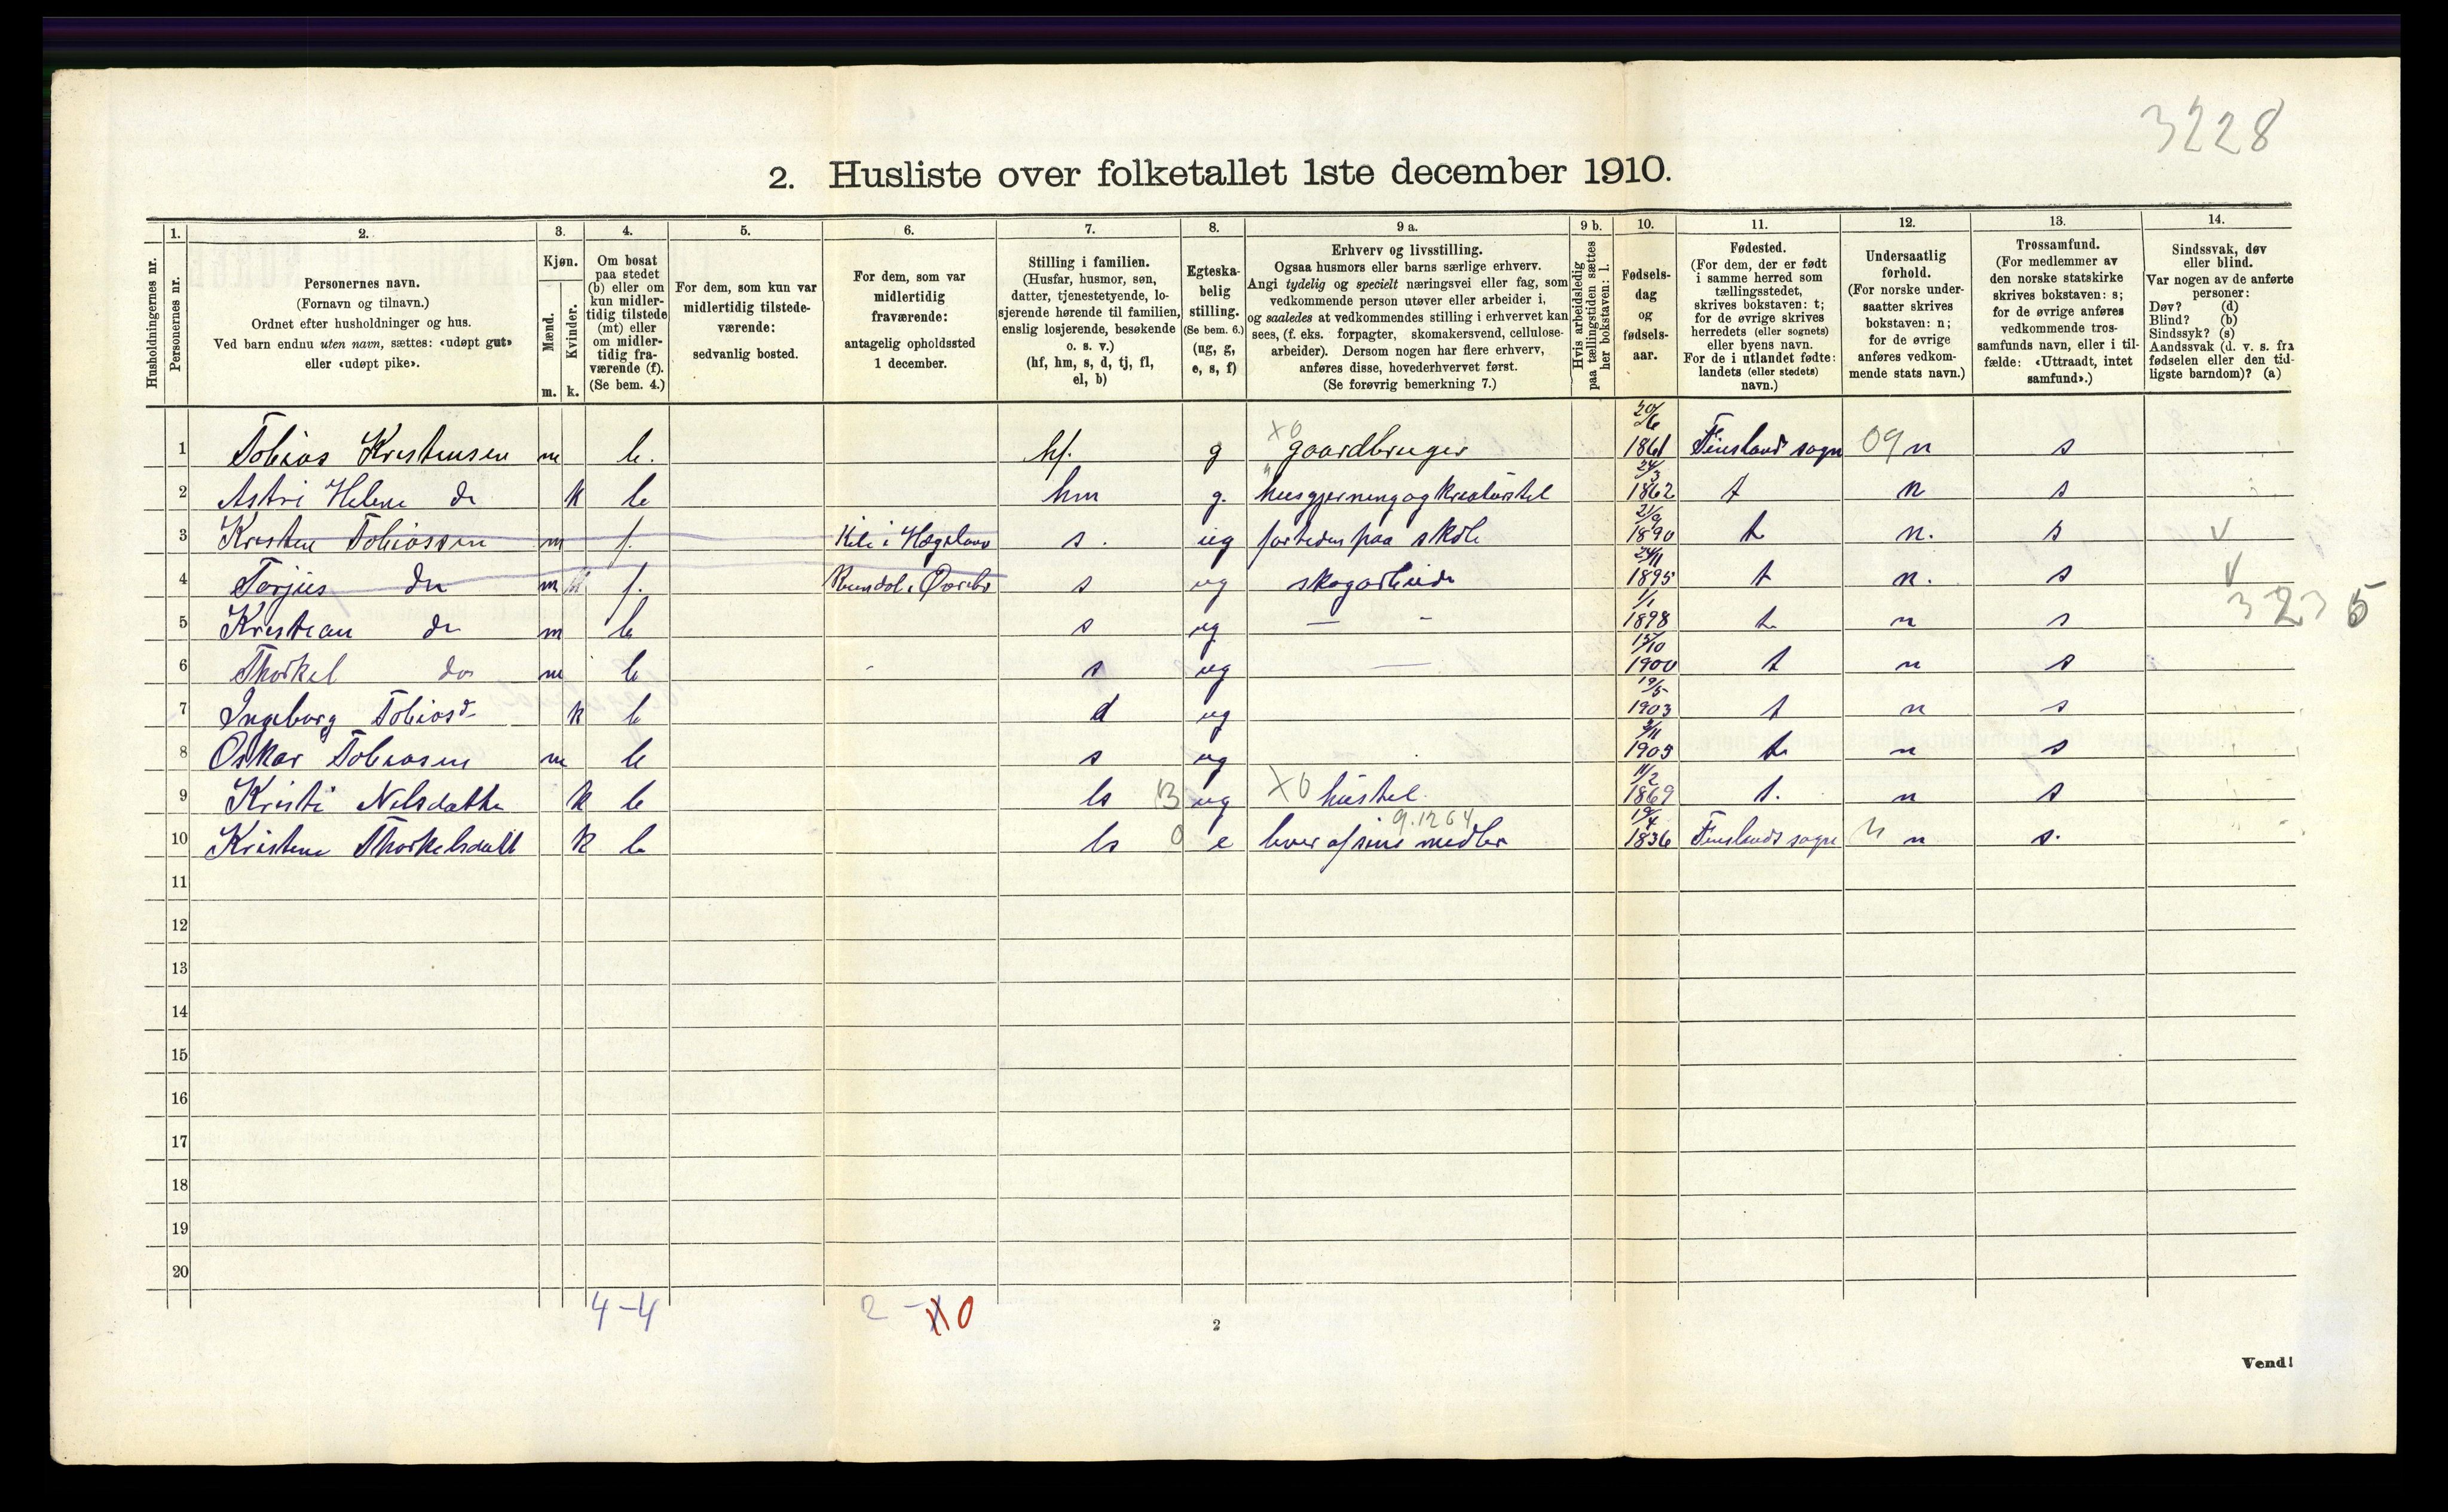 3228
2. Husliste over folketallet 1ste december 1910.
Husholdningernes nr.
1.
Personernes nr.
2.
Personernes navn.
(Fornavn og tilnavn.)
Ordnet efter husholdninger og hus.
Ved barn endnu uten navn, sættes: «udøpt gut»
eller «udøpt pike».
3.
Kjøn.
Mænd.
Kvinder.
m.
k.
4.
Om bosat
paa stedet
(b) eller om
kun midler-
tidig tilstede
(mt) eller
om midler-
tidig fra-
værende (f).
(Se bem. 4.)
5.
For dem, som kun var
midlertidig tilstede-
værende:
sedvanlig bosted.
6.
For dem, som var
midlertidig
fraværende:
antagelig opholdssted
1 december.
7.
Stilling i familien.
(Husfar, husmor, søn,
datter, tjenestetyende, lo-
sjerende hørende til familien,
enslig losjerende, besøkende
o. s. v.)
(hf, hm, s, d, tj, fl,
el, b)
8.
Egteska-
belig
stilling.
(Se bem. 6.)
(ug, g,
e, s, f)
9 a.
Erhverv og livsstilling.
Ogsaa husmors eller barns særlige erhverv.
Angi tydelig og specielt næringsvei eller fag, som
vedkommende person utøver eller arbeider i,
og saaledes at vedkommendes stilling i erhvervet kan
sees, (f. eks. forpagter, skomakersvend, cellulose-
arbeider). Dersom nogen har flere erhverv,
anføres disse, hovederhvervet først.
(Se forøvrig bemerkning 7.)
9 b.
Hvis arbeidsledig
paa tællingstiden sættes
her bokstaven: l.
10.
Fødsels-
dag
og
fødsels-
aar.
11.
Fødested.
(For dem, der er født
i samme herred som
tællingsstedet,
skrives bokstaven: t;
for de øvrige skrives
herredets (eller sognets)
eller byens navn.
For de i utlandet fødte:
landets (eller stedets)
navn.)
12.
Undersaatlig
forhold.
(For norske under-
saatter skrives
bokstaven: n;
for de øvrige
anføres vedkom-
mende stats navn.)
13.
Trossamfund.
(For medlemmer av
den norske statskirke
skrives bokstaven: s;
for de øvrige anføres
vedkommende tros-
samfunds navn, eller i til-
fælde: «Uttraadt, intet
samfund».)
14.
Sindssvak, døv
eller blind.
Var nogen av de anførte
personer:
Døv? (d)
Blind? (b)
Sindssyk? (s)
Aandssvak (d. v. s. fra
fødselen eller den tid-
ligste barndom)? (a)
1 Tobias Kristensen m b. hf. g X0 gaardbruger 20/6 1861 Finslands sogn 09 n s
2 Astri Helene do k b hm g. husgjerning og kreaturstel 24/3 1862 t n s
3 Kristen Tobiassen m f. Kile i Hægeland s. ug fortiden paa skole 21/9 1890 t n. s v
4 Torjus do m f. s ug skogarbeide 24/11 1895 t n. s v
3235
5 Kristian do m b s ug — - 1/1 1898 t n s
6 Thorkel do m b - s ug — 15/10 1900 t n s
7 Ingeborg Tobiasd k b d ug 19/5 1903 t n s
8 Oskar Tobiasen m b s ug 1905 t n s
9 Kristi Nilsdatter k b ls 13 ug X0 hustel 11/2 1869 t. n s
9.1264
10 Kristine Thorkelsdatt k b ls 0 e lever af sine midler 19/4 1836 Finslands sogn n s.
11
12
13
14
15
16
17
18
19
20
4-4 2 - 0
2
Vend!